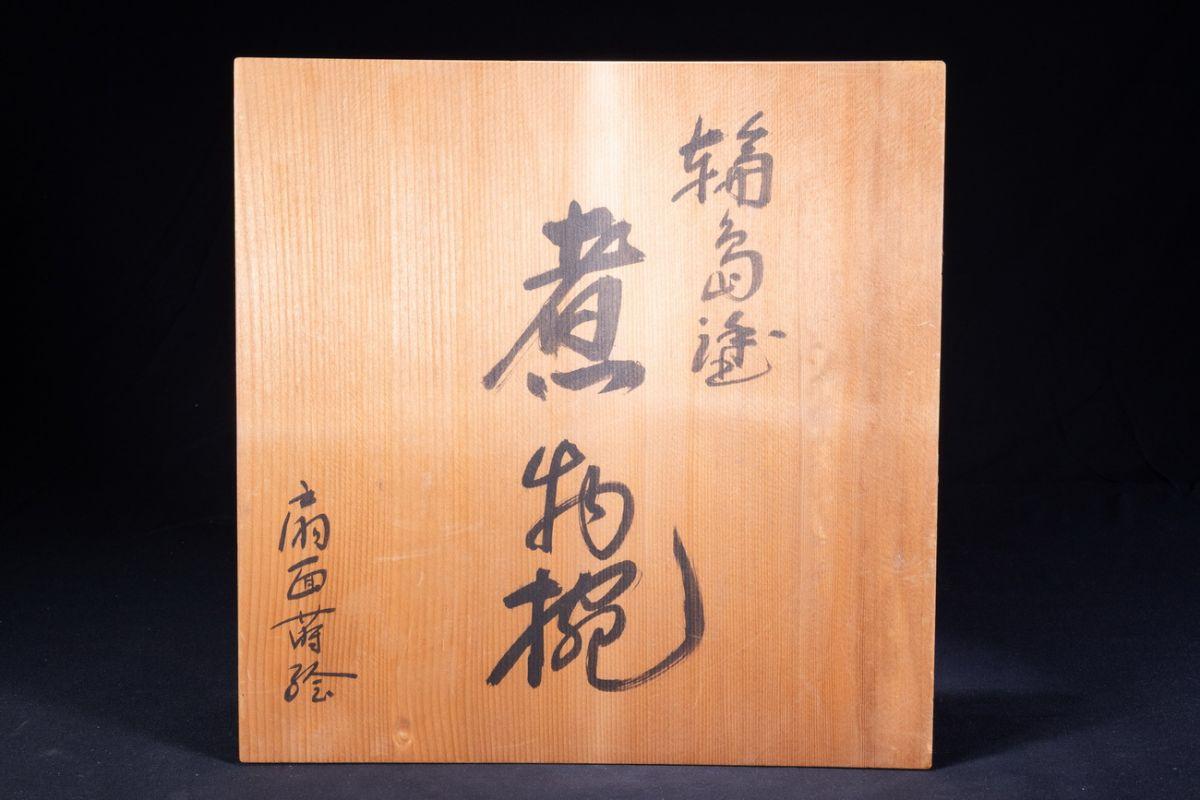 輪島塗
煮物椀
扇面蒔絵